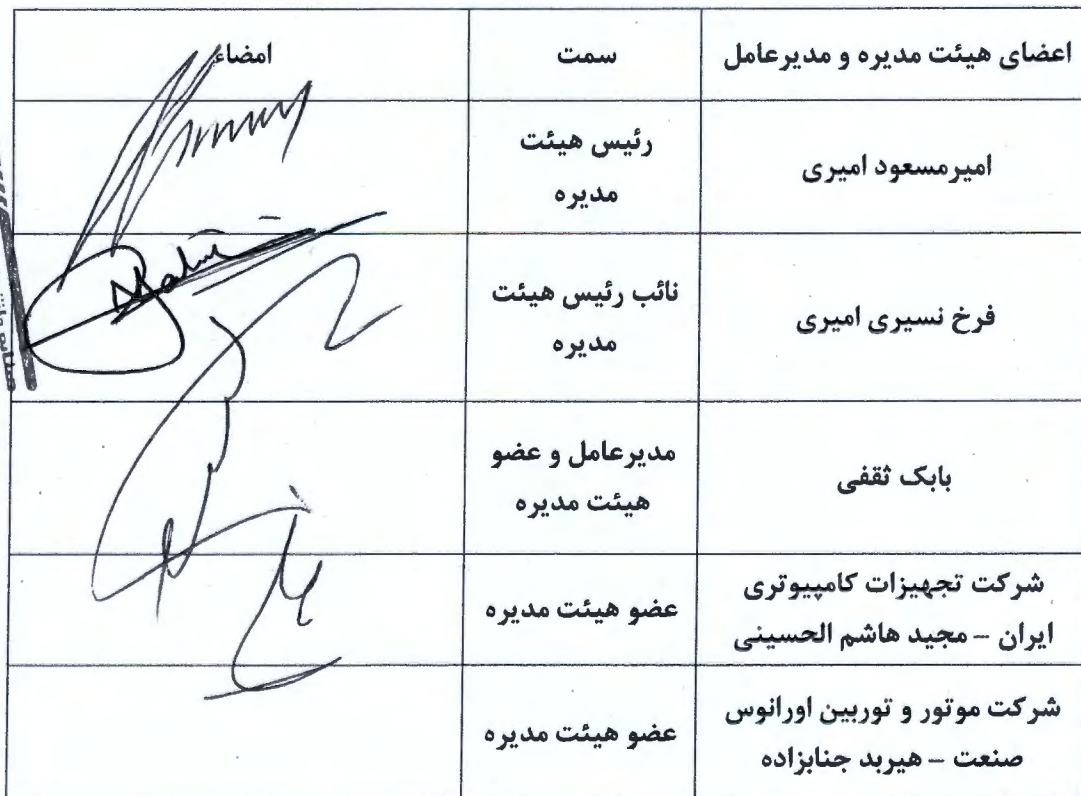 اعضای هیئت مدیره و مدیرعامل سمت امضاء
امیرمسعود امیری رئیس هیئت
مدیره
فرخ نسیری امیری نائب رئیس هیئت
مدیره
بابک ثقفی مدیرعامل و عضو
هیئت مدیره
شرکت تجهیزات کامپیوتری
ایران – مجید هاشم الحسینی عضو هیئت مدیره
شرکت موتور و توربین اورانوس
صنعت – هیربد جنابزاده عضو هیئت مدیره